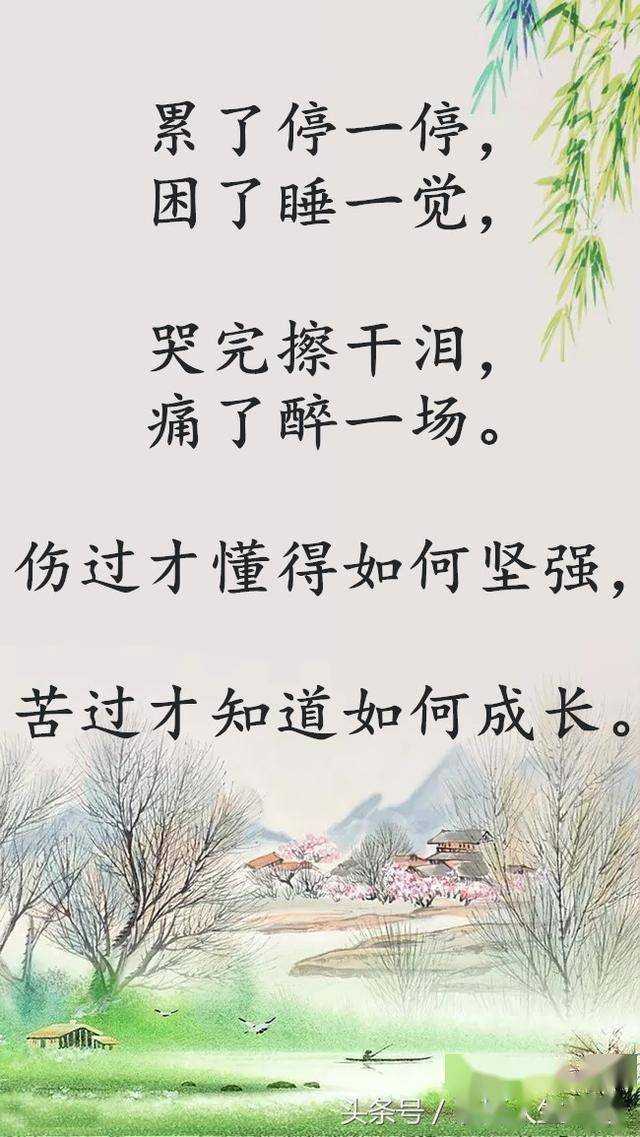 累了停一停，
困了睡一觉，
哭完擦干泪，
痛了醉一场。
伤过才懂得如何坚强，
苦过才知道如何成长。
头条号 /